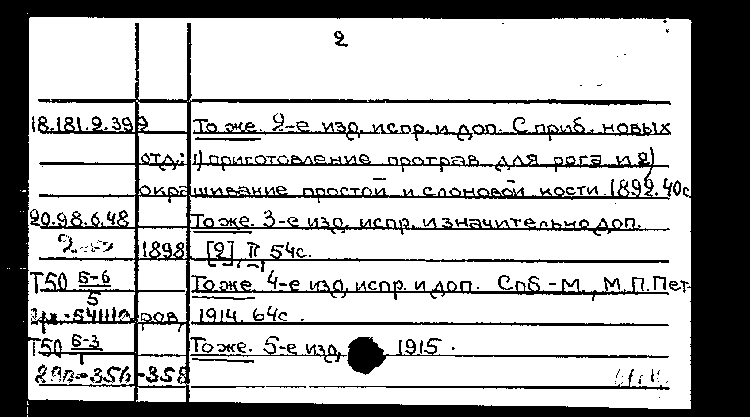 2
18.181.2.399 То же. 2-е изд. испр. и доп. С приб. новых
отд.: 1) приготовление протрав для рога и 2)
окрашивание простой и слоновой кости. 1892. 40с
20.98.6.48 То же. 3-е изд. испр. и значительно доп.
1898 [2], II, 54с.
Т50 Б-6/5 То же. 4-е изд. испр. и доп. Спб-М., М.П.Пет-
ров, 1914. 64с.
Т50 Б-3/1 То же. 5-е изд. 1915.
356-358